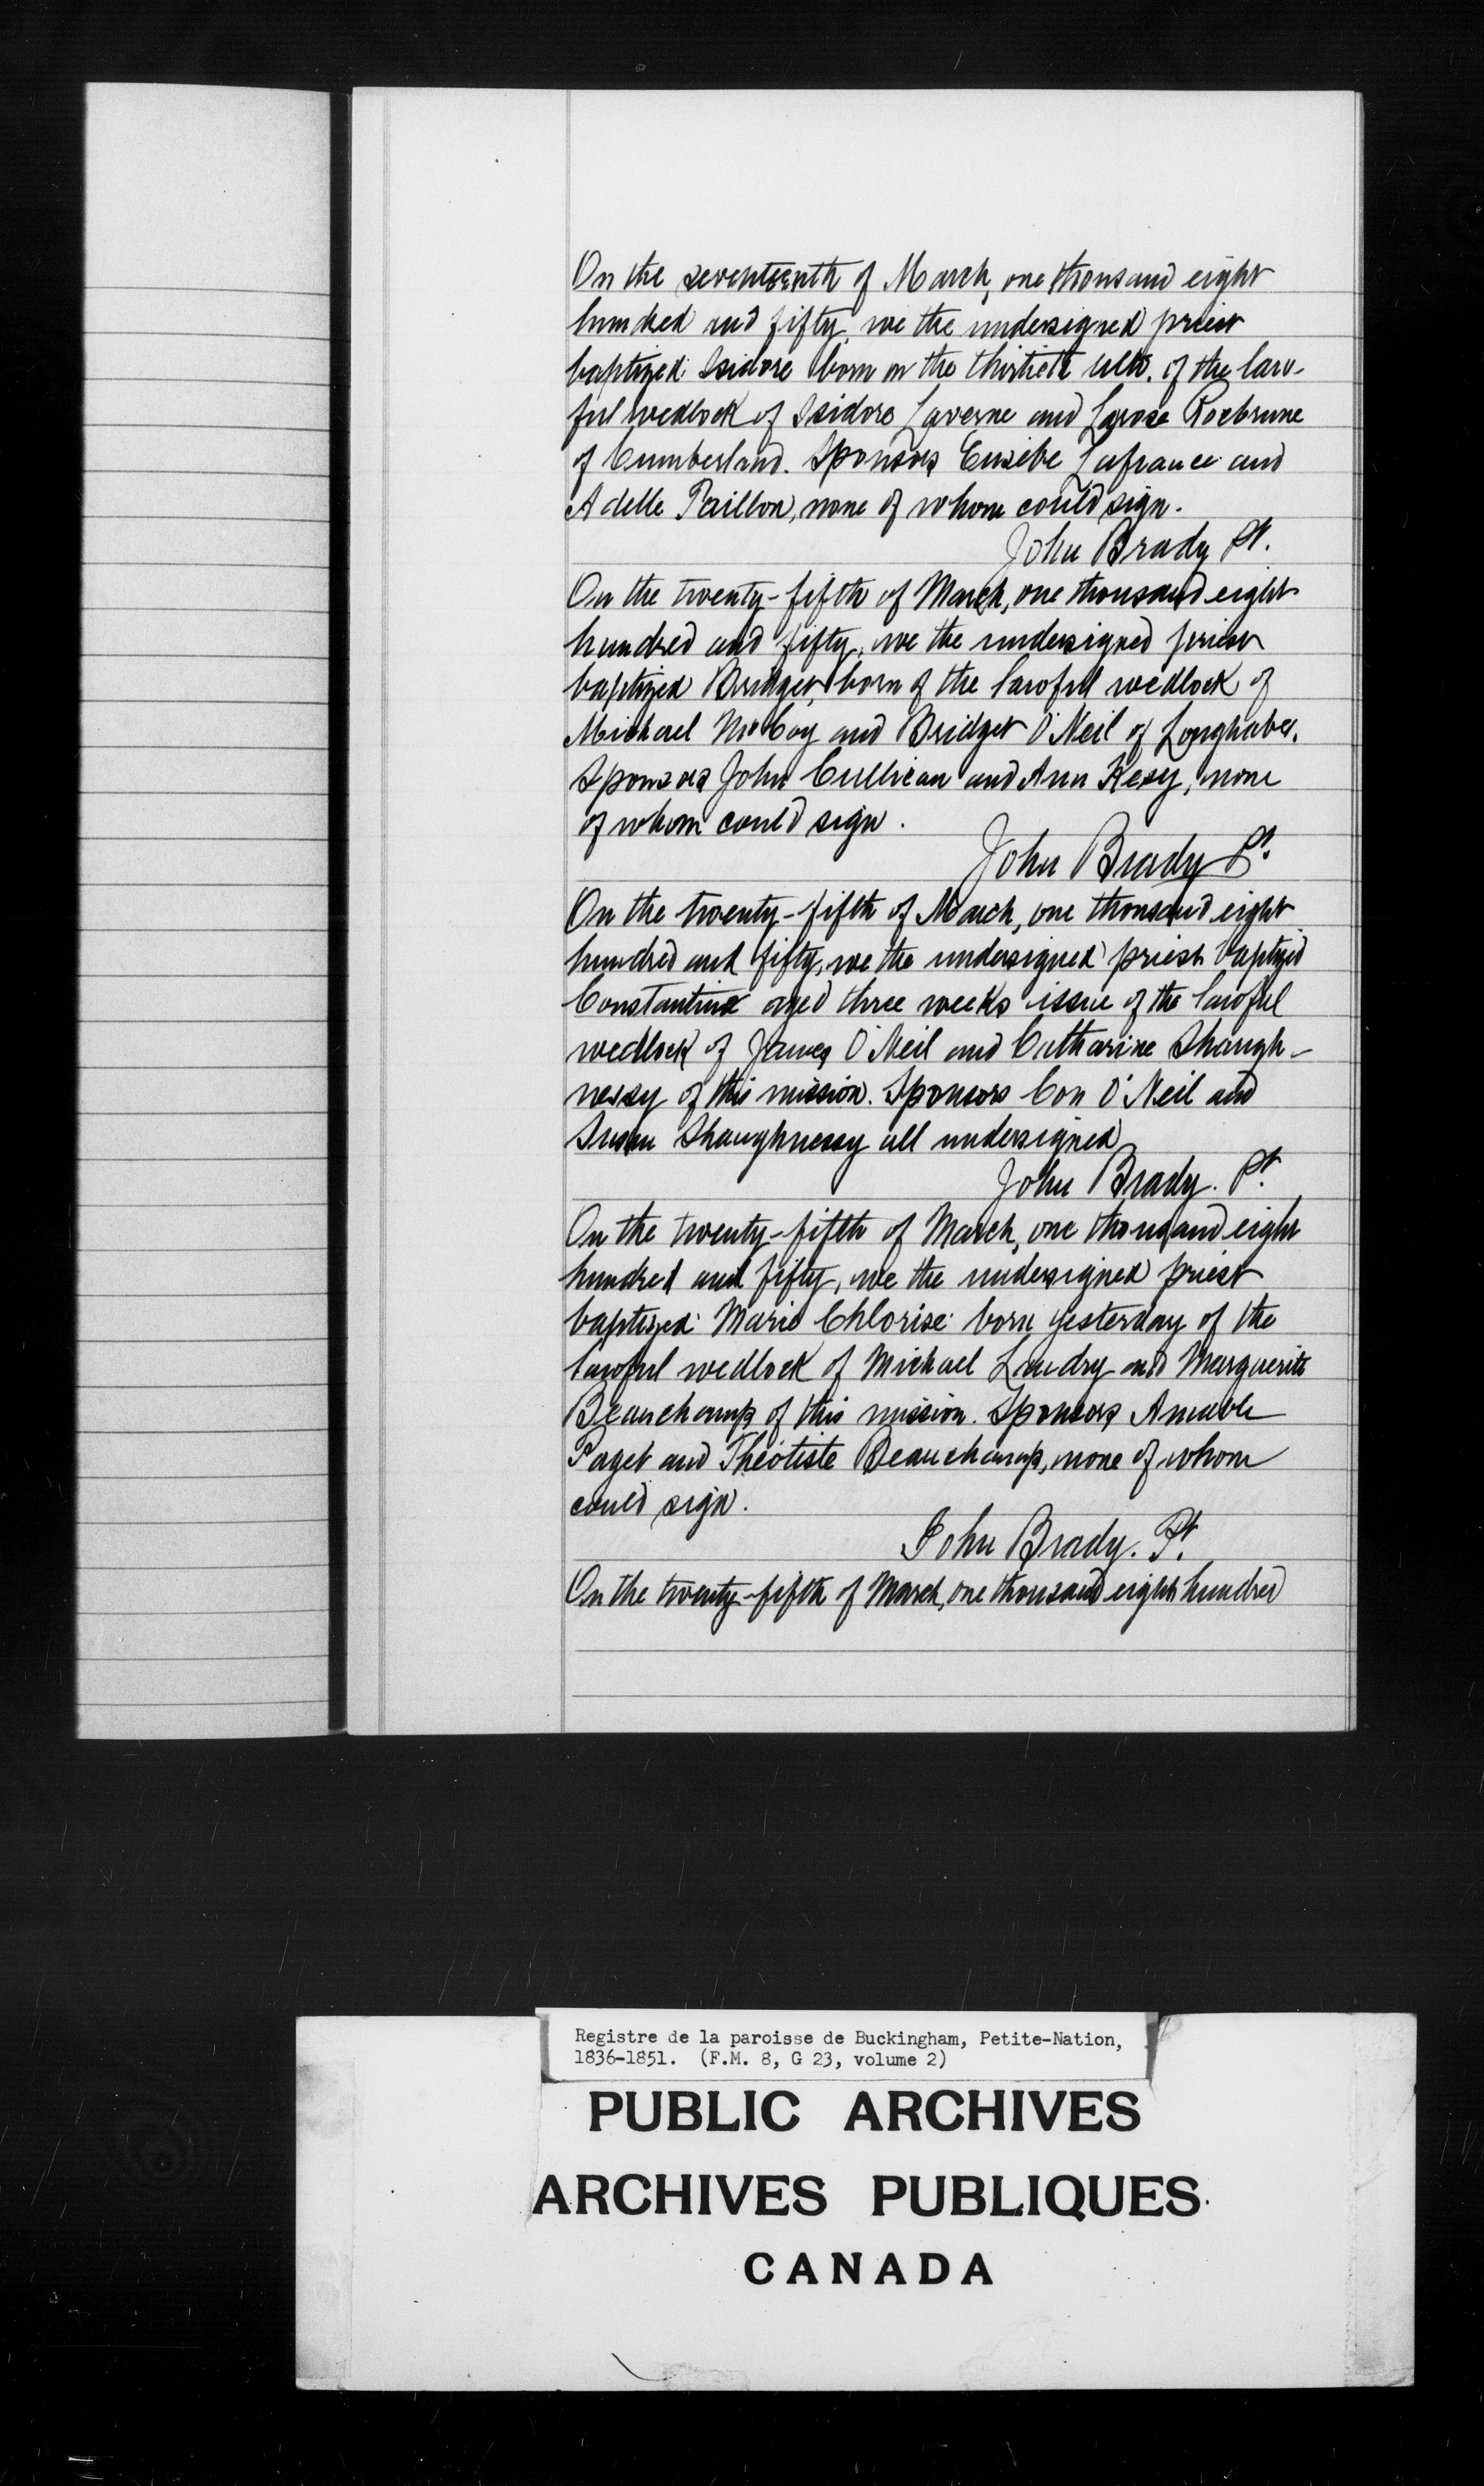 On the seventeenth of March, one thousand eight
hundred and fifty, we the undersigned priest
baptized Isidore born on the thirtieth ulto. of the law-
ful wedlock of Isidore Laverne and Larose Rocbrune
of Cumberland. Sponsors Eusèbe Lafrance and
Adelle Paillon, none of whom could sign.
John Brady Pt.
On the twenty-fifth of March, one thousand eight
hundred and fifty, we the undersigned priest
baptized Bridget, born of the lawful wedlock of
Michael McCoy and Bridget O'Neil of Longhaber.
Sponsors John Cullican and Ann Kesy, none
of whom could sign.
John Brady Pt.
On the twenty-fifth of March, one thousand eight
hundred and fifty, we the undersigned priest baptized
Constantine aged three weeks issue of the lawful
wedlock of James O'Neil and Catharine Shaugh-
nessy of this mission. Sponsors Con O'Neil and
Susan Shaughnessy all undersigned
John Brady. Pt.
On the twenty-fifth of March, one thousand eight
hundred and fifty, we the undersigned priest
baptized Marie Chlorise born yesterday of the
lawful wedlock of Michael Landry and Marguerite
Beauchamp of this mission. Sponsors Amable
Paget and Théotiste Beauchamp, none of whom
could sign.
John Brady. Pt.
On the twenty-fifth of March, one thousand eight hundred
Registre de la paroisse de Buckingham, Petite-Nation,
1836-1851. (F.M. 8, G 23, volume 2)
PUBLIC ARCHIVES
ARCHIVES PUBLIQUES
CANADA